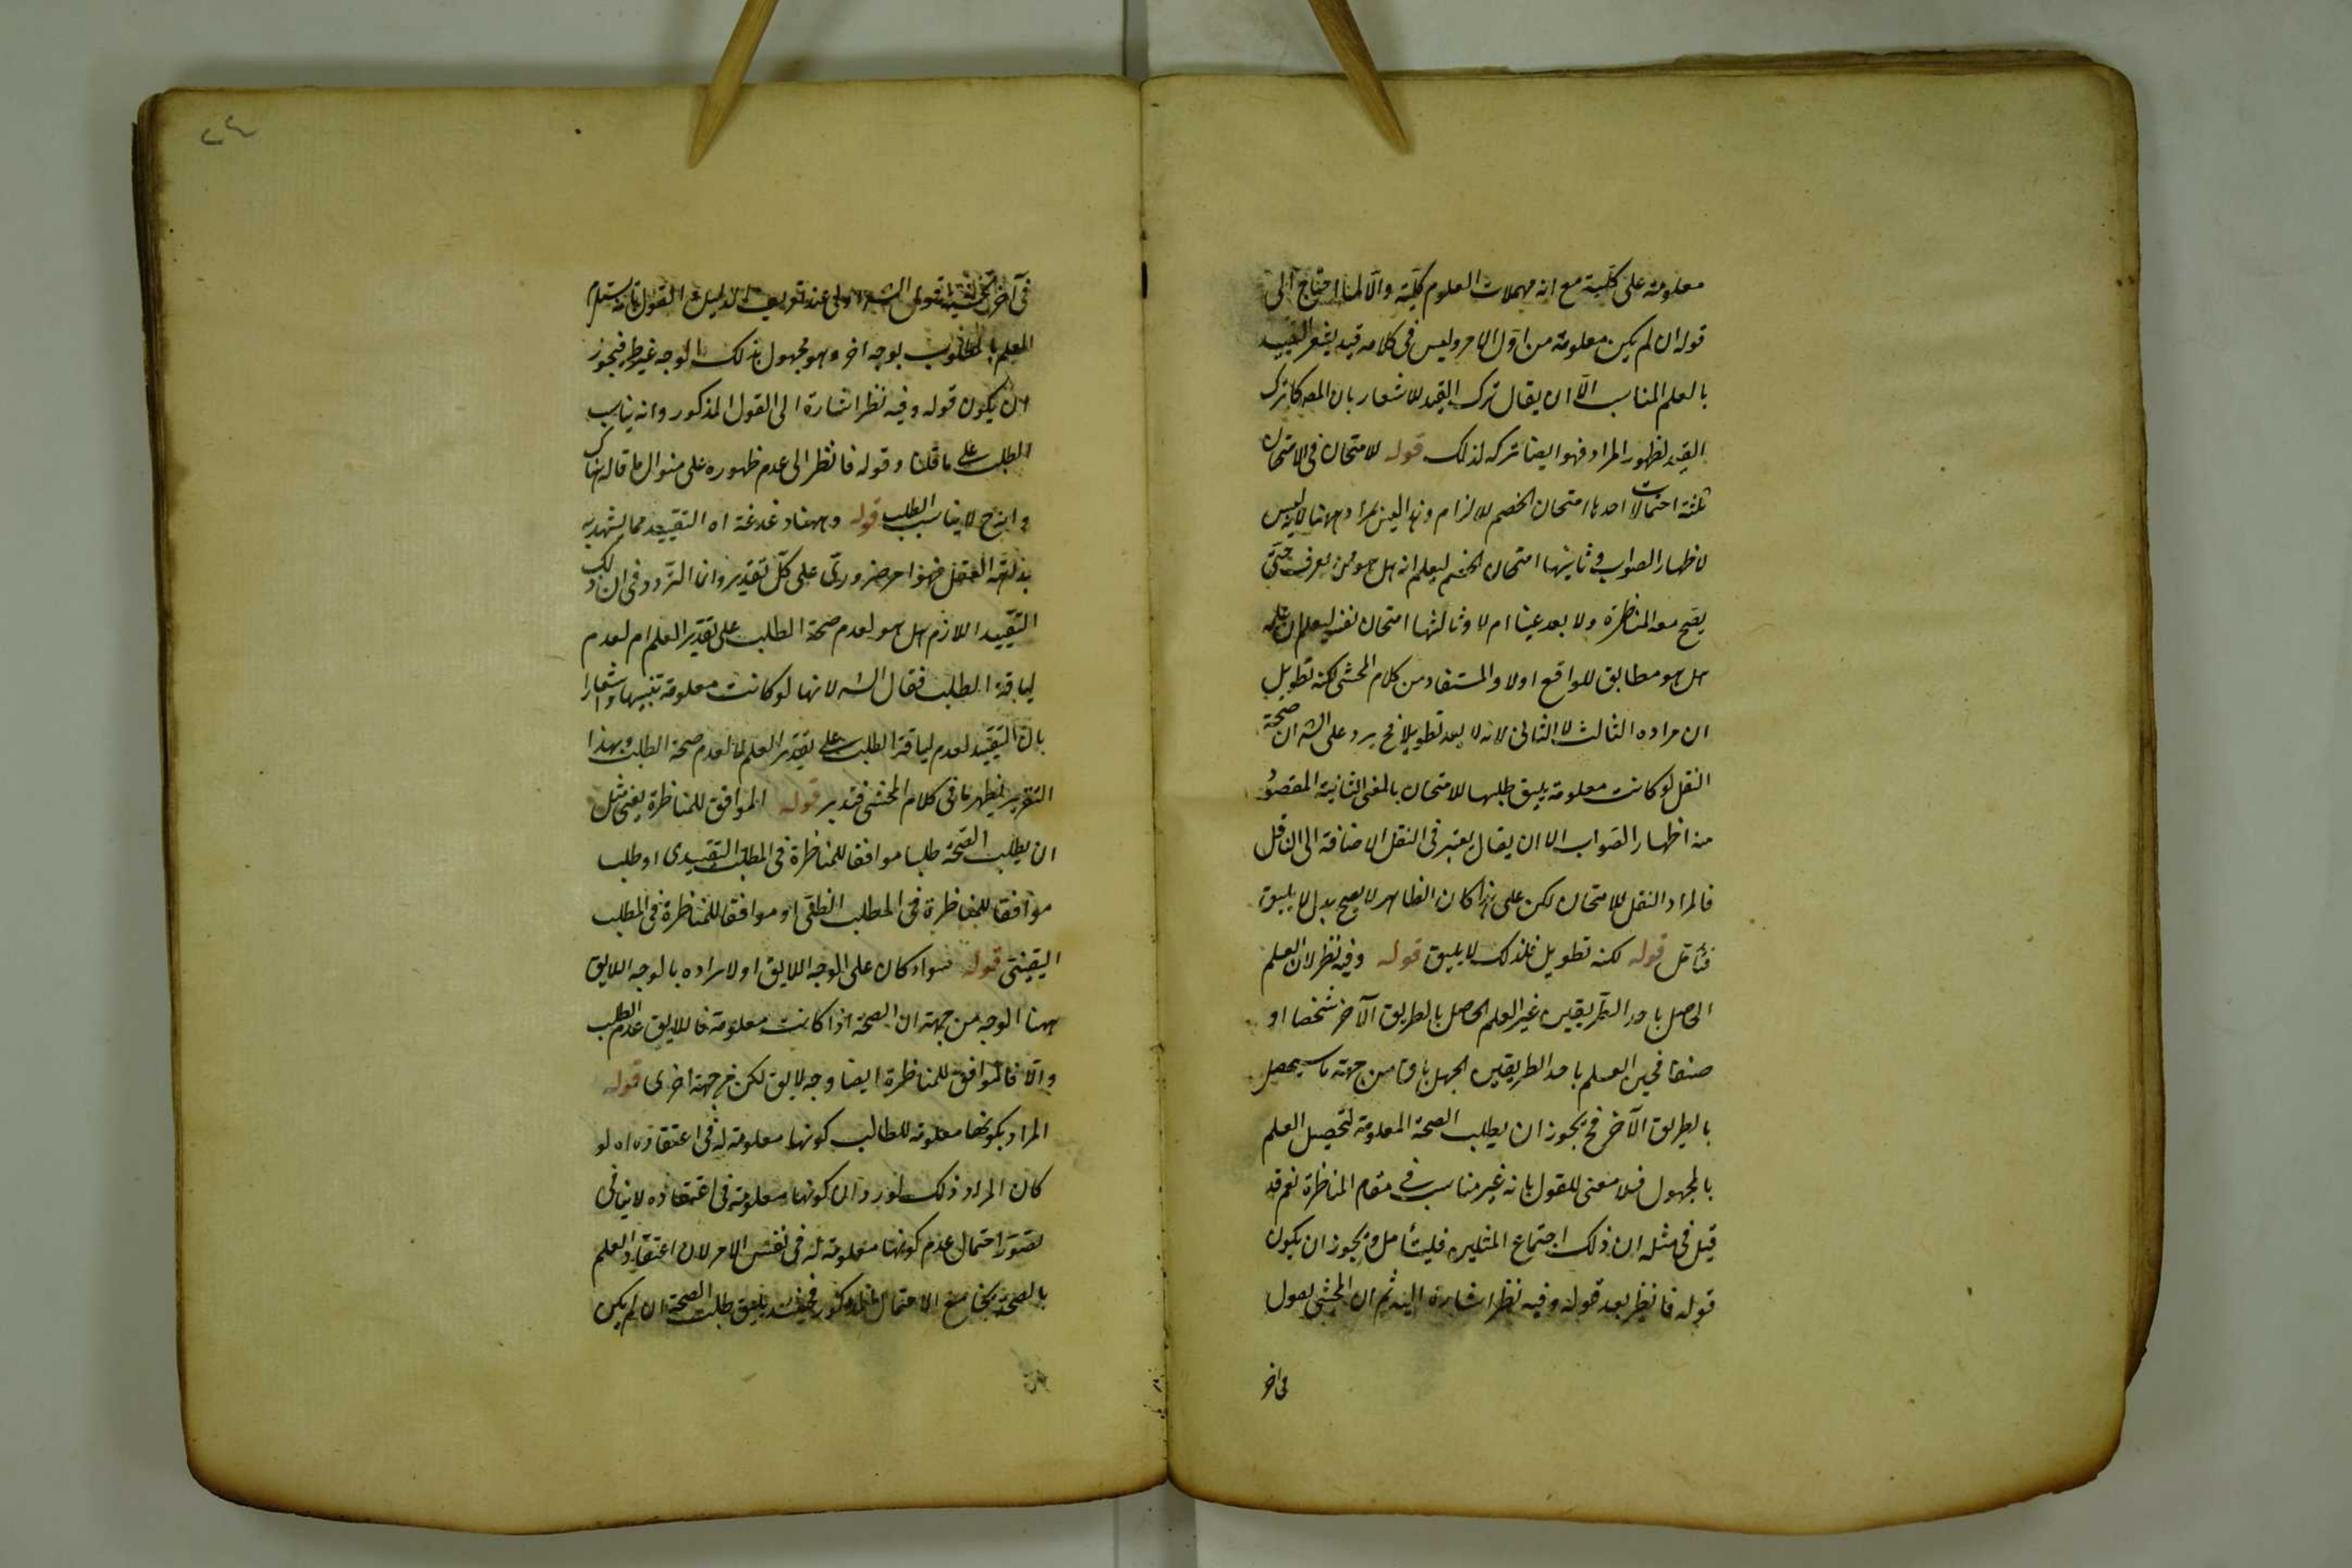 معلومة على كلية مع انه مهملات العلوم كلية والا لما احتاج الى
قوله ان لم يكن معلومة من اول الامر وليس فى كلامه قيد يشعر التقييد
بالعلم المناسب الا ان يقال ترك القيد للاشعار بان المص كما ترك
القيد لظهور المراد فهو ايضا تركه لذلك قوله للامتحان فى الامتحان
ثلثة احتمالات احدها امتحان الخصم للالزام وهذا ليس بمراد ههنا لانه ليس
لاظهار الصواب وثانيها امتحان الخصم ليعلم انه هل هو ممن يعرف حتى
يصح معه المناظرة ولا يعد عبثا ام لا وثالثها امتحان نفسه ليعلم ان علمه
هل هو مطابق للواقع اولا والمستفاد من كلام المحشى لكنه تطويل
ان مراده الثالث لا الثانى لانه لا يعد تطويلا فح يرد على الش ان صحة
النقل لو كانت معلومة يليق طلبها للامتحان بالمعنى الثانية المقصود
منه اظهار الصواب الا ان يقال يعتبر فى النقل الاضافة الى الناقل
فالمراد النقل للامتحان لكن على هذا كان الظاهر لا يصح بدل لا يليق
فتأمل قوله لكنه تطويل فلذلك لا يليق قوله وفيه نظر لان العلم
الحاصل باحد الطريقين غير العلم الحاصل بالطريق الآخر شخصا او
صنفا فحين العلم باحد الطريقين الجهل باق من جهة ما سيحصل
بالطريق الآخر فح يجوز ان يطلب الصحة المعلومة لتحصيل العلم
بالمجهول فلا معنى للقول بانه غير مناسب فى مقام المناظرة نعم قد
قيل فى مثله ان ذلك اجتماع المثلين فليتأمل ويجوز ان يكون
قوله فانظر بعد قوله وفيه نظر اشارة اليه ثم ان المحشى يقول
فى آخر
٢٤
فى آخر الحاشية قول الش اولى عند تعريف الدليل القول بانه يستلزم
العلم بالمطلوب بوجه اخر وهو مجهول بذلك الوجه غير طر فيجوز
ان يكون قوله وفيه نظر اشارة الى القول المذكور وانه يناسب
الطلب على ما قلنا وقوله فانظر الى عدم ظهوره على منوال ما قاله هناك
لا يناسب الطلب قوله وههنا دغدغة اه التقييد مما يشهد به
بداهة العقل فهو امر ضرورى على كل تقدير وانما التردد فى ان ذلك
التقييد اللازم هل هو لعدم صحة الطلب على تقدير العلم ام لعدم
لياقة الطلب فقال الش لانها لو كانت معلومة تنبيها واشعارا
بان التقييد لعدم لياقة الطلب على تقدير العلم لا لعدم صحة الطلب وبهذا
التقرير يظهر ما فى كلام المحشى فتدبر قوله الموافق للمناظرة يعنى مثل
ان يطلب الصحة طلبا موافقا للمناظرة فى المطلب التقييدى او طلب
موافقا للمناظرة فى المطلب الظنى او موافقا للمناظرة فى المطلب
اليقينى قوله سواء كان على الوجه اللايق اولا مراده بالوجه اللايق
ههنا الوجه من جهة ان الصحة اذا كانت معلومة فاللايق عدم الطلب
والا فالموافق للمناظرة ايضا وجه لايق لكن من جهة اخرى قوله
المراد بكونها معلومة للطالب كونها معلومة له فى اعتقاده اه لو
كان المراد ذلك لورد ان كونها معلومة فى اعتقاده لا ينافى
تصور احتمال عدم كونها معلومة له فى نفس الامر لان اعتقاد العلم
بالصحة يجامع الاحتمال المذكور فحينئذ يليق طلب الصحة ان لم يكن